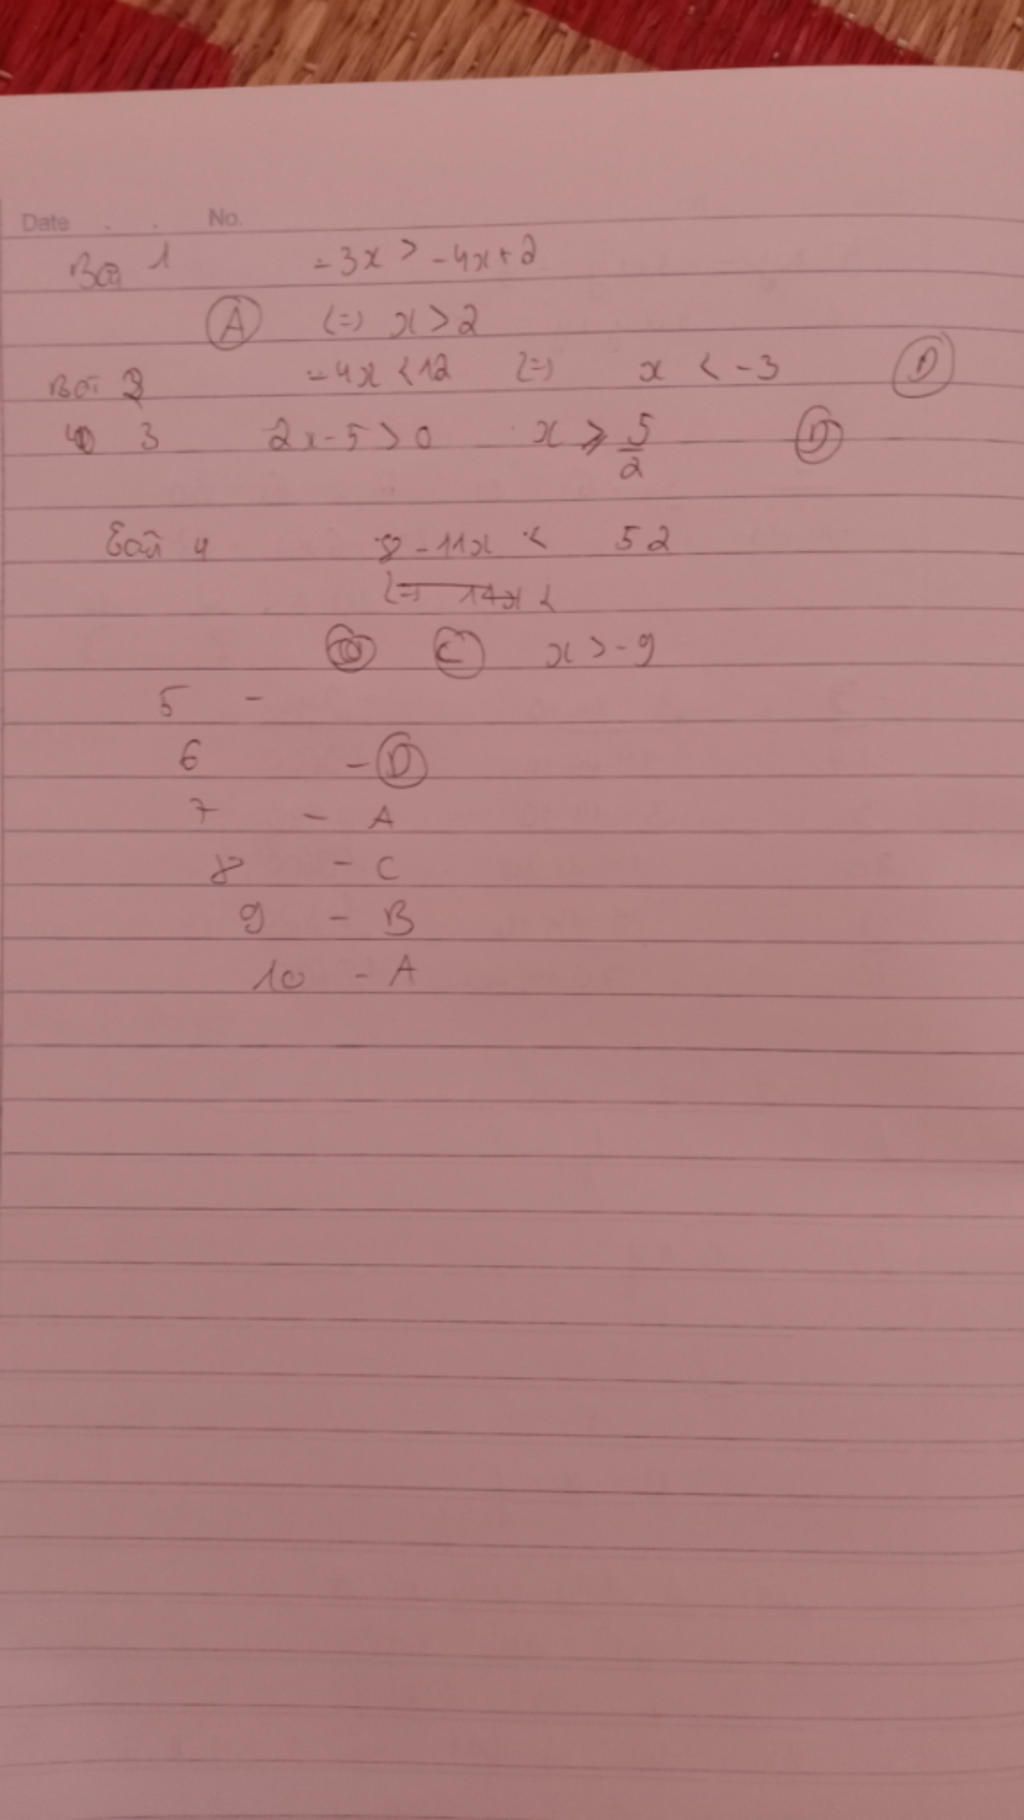 Date . . No.
Bài 1 -3x > -4x+2
A (=) x > 2
Bài 2 -4x < 12 (=) x < -3 D
3 2x-5 > 0 x ⩾ 5/2 D
Bài 4 8 - 11x < 52
(=) 14x <
C x > -9
5 -
6 - D
7 - A
8 - C
9 - B
10 - A